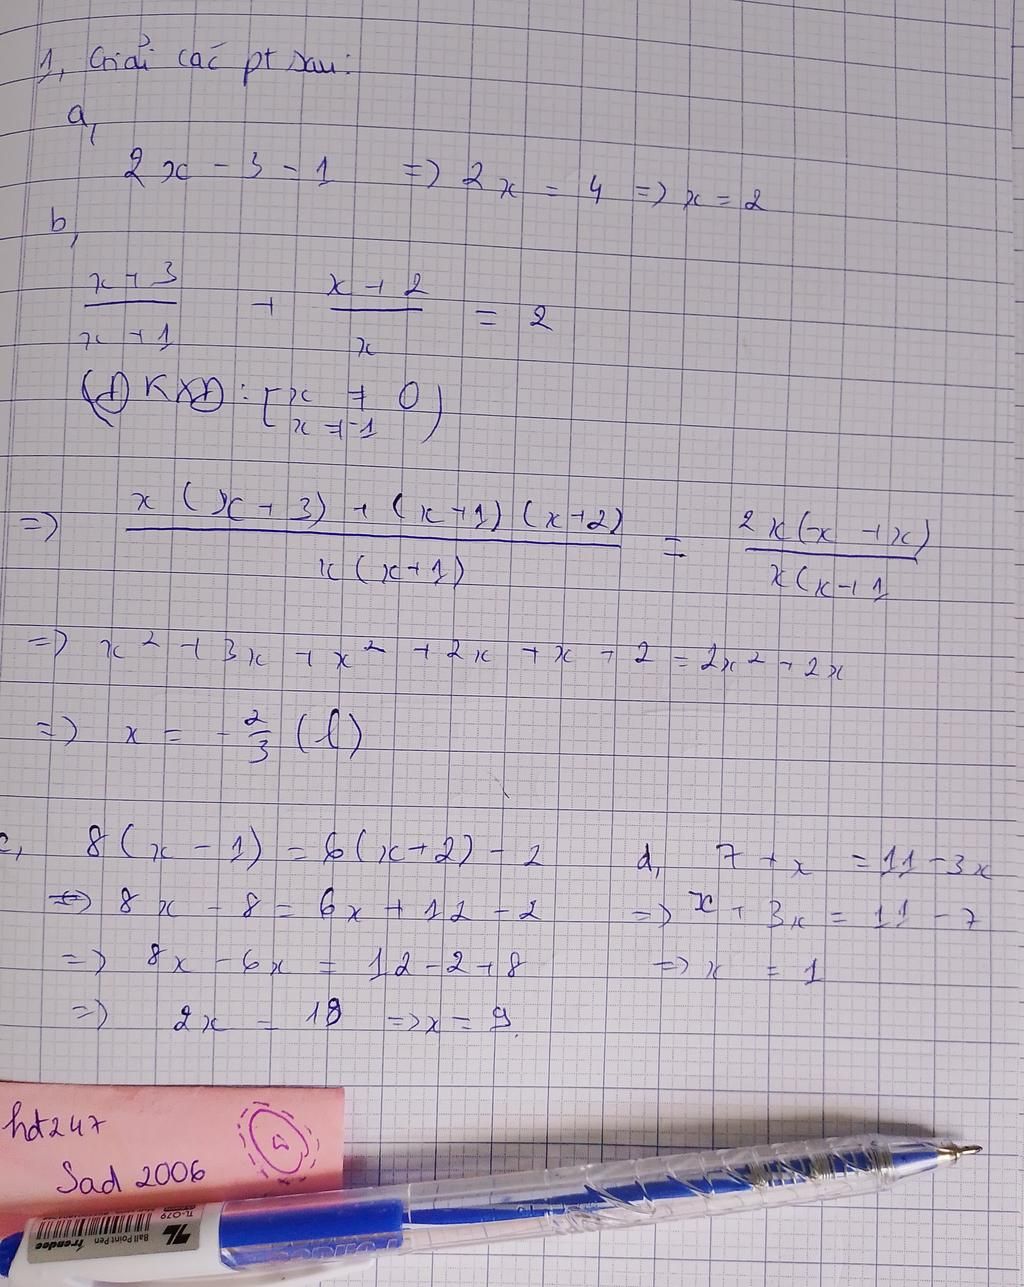 1, Giải các pt sau:
a,
2x - 3 = 1 => 2x = 4 => x = 2
b,
x + 3 / x + 1 + x + 2 / x = 2
(ĐKXĐ: [x ≠ 0
x ≠ -1)
=> x(x + 3) + (x+1)(x+2) / x(x+1) = 2x(x + x) / x(x+1
=> x² + 3x + x² + 2x + x + 2 = 2x² + 2x
=> x = - 2/3 (l)
c, 8(x - 1) = 6(x+2) - 2
<=> 8x - 8 = 6x + 12 - 2
=> 8x - 6x = 12 - 2 + 8
=> 2x = 18 => x = 9.
d, 7 + x = 11 - 3x
=> x + 3x = 11 - 7
=> x = 1
hdt247
Sad 2006
TL-079
Ball Point Pen
Trendee